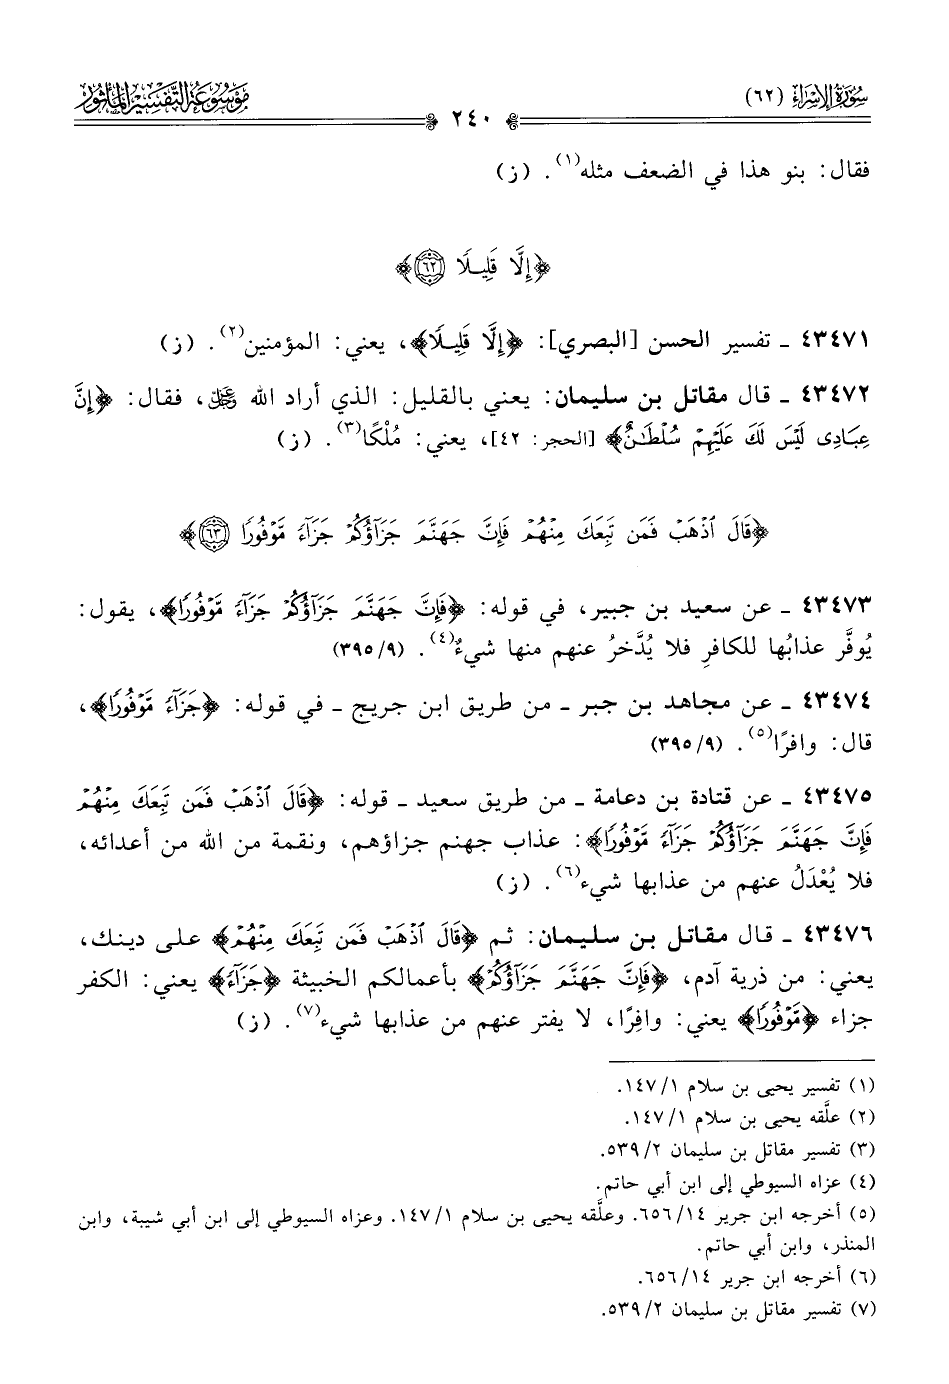 سورة الإسراء (٦٢)
موسوعة التفسير المأثور
٢٤٠
فقال: بنو هذا في الضعف مثله(١). (ز)
﴿إِلَّا قَلِيلًا ٦٢﴾
٤٣٤٧١ ـ تفسير الحسن [البصري]: ﴿إِلَّا قَلِيلًا﴾، يعني: المؤمنين(٢). (ز)
٤٣٤٧٢ ـ قال مقاتل بن سليمان: يعني بالقليل: الذي أراد الله ﷿، فقال: ﴿إِنَّ
عِبَادِى لَيْسَ لَكَ عَلَيْهِمْ سُلْطَٰنٌ﴾ [الحجر: ٤٢]، يعني: مُلْكًا(٣). (ز)
﴿قَالَ ٱذْهَبْ فَمَن تَبِعَكَ مِنْهُمْ فَإِنَّ جَهَنَّمَ جَزَآؤُكُمْ جَزَآءً مَّوْفُورًا ٦٣﴾
٤٣٤٧٣ ـ عن سعيد بن جبير، في قوله: ﴿فَإِنَّ جَهَنَّمَ جَزَآؤُكُمْ جَزَآءً مَّوْفُورًا﴾، يقول:
يُوفَّر عذابُها للكافرِ فلا يُدَّخرُ عنهم منها شيءٌ(٤). (٣٩٥/٩)
٤٣٤٧٤ ـ عن مجاهد بن جبر ـ من طريق ابن جريج ـ في قوله: ﴿جَزَآءً مَّوْفُورًا﴾،
قال: وافرًا(٥). (٣٩٥/٩)
٤٣٤٧٥ ـ عن قتادة بن دعامة ـ من طريق سعيد ـ قوله: ﴿قَالَ ٱذْهَبْ فَمَن تَبِعَكَ مِنْهُمْ
فَإِنَّ جَهَنَّمَ جَزَآؤُكُمْ جَزَآءً مَّوْفُورًا﴾: عذاب جهنم جزاؤهم، ونقمة من الله من أعدائه،
فلا يُعْدَلُ عنهم من عذابها شيء(٦). (ز)
٤٣٤٧٦ ـ قال مقاتل بن سليمان: ثم ﴿قَالَ ٱذْهَبْ فَمَن تَبِعَكَ مِنْهُمْ﴾ على دينك،
يعني: من ذرية آدم، ﴿فَإِنَّ جَهَنَّمَ جَزَآؤُكُمْ﴾ بأعمالكم الخبيثة ﴿جَزَآءً﴾ يعني: الكفر
جزاء ﴿مَّوْفُورًا﴾ يعني: وافِرًا، لا يفتر عنهم من عذابها شيء(٧). (ز)
(١) تفسير يحيى بن سلام ١/ ١٤٧.
(٢) علَّقه يحيى بن سلام ١/ ١٤٧.
(٣) تفسير مقاتل بن سليمان ٢/ ٥٣٩.
(٤) عزاه السيوطي إلى ابن أبي حاتم.
(٥) أخرجه ابن جرير ١٤/ ٦٥٦. وعلَّقه يحيى بن سلام ١/ ١٤٧. وعزاه السيوطي إلى ابن أبي شيبة، وابن
المنذر، وابن أبي حاتم.
(٦) أخرجه ابن جرير ١٤/ ٦٥٦.
(٧) تفسير مقاتل بن سليمان ٢/ ٥٣٩.